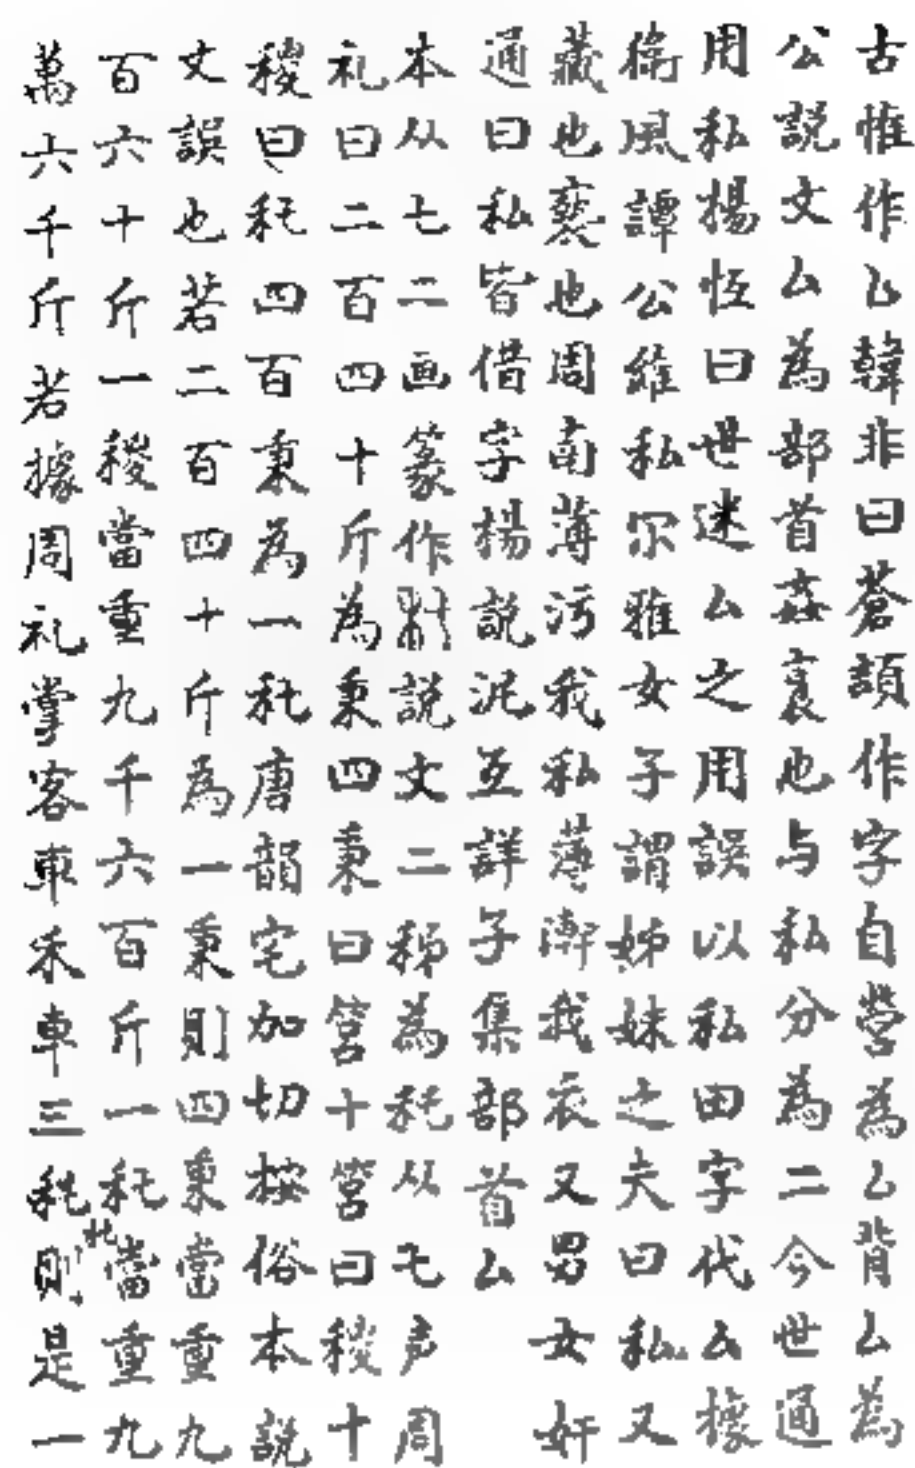 古惟作厶韓非曰蒼頡作字自營為厶背厶為
公説文厶為部首姦衺也与私分為二今世通
用私楊恆曰世迷厶之用誤以私田字代厶據
衛風譚公維私尔雅女子謂姊妹之夫曰私又
藏也褻也周南薄污我私薄澣我衣又男女奸
通曰私皆借字楊説泥互詳子集部首厶
本从七二画篆作説文二秭為秅从乇声周
礼曰二百四十斤為秉四秉曰筥十筥曰稷十
稷曰秅四百秉為一秅唐韻宅加切按俗本説
文誤也若二百四十斤為一秉則四秉當重九
百六十斤一稷當重九千六百斤一秅當重九
萬六千斤若據周礼掌客車禾車三秅則此是一